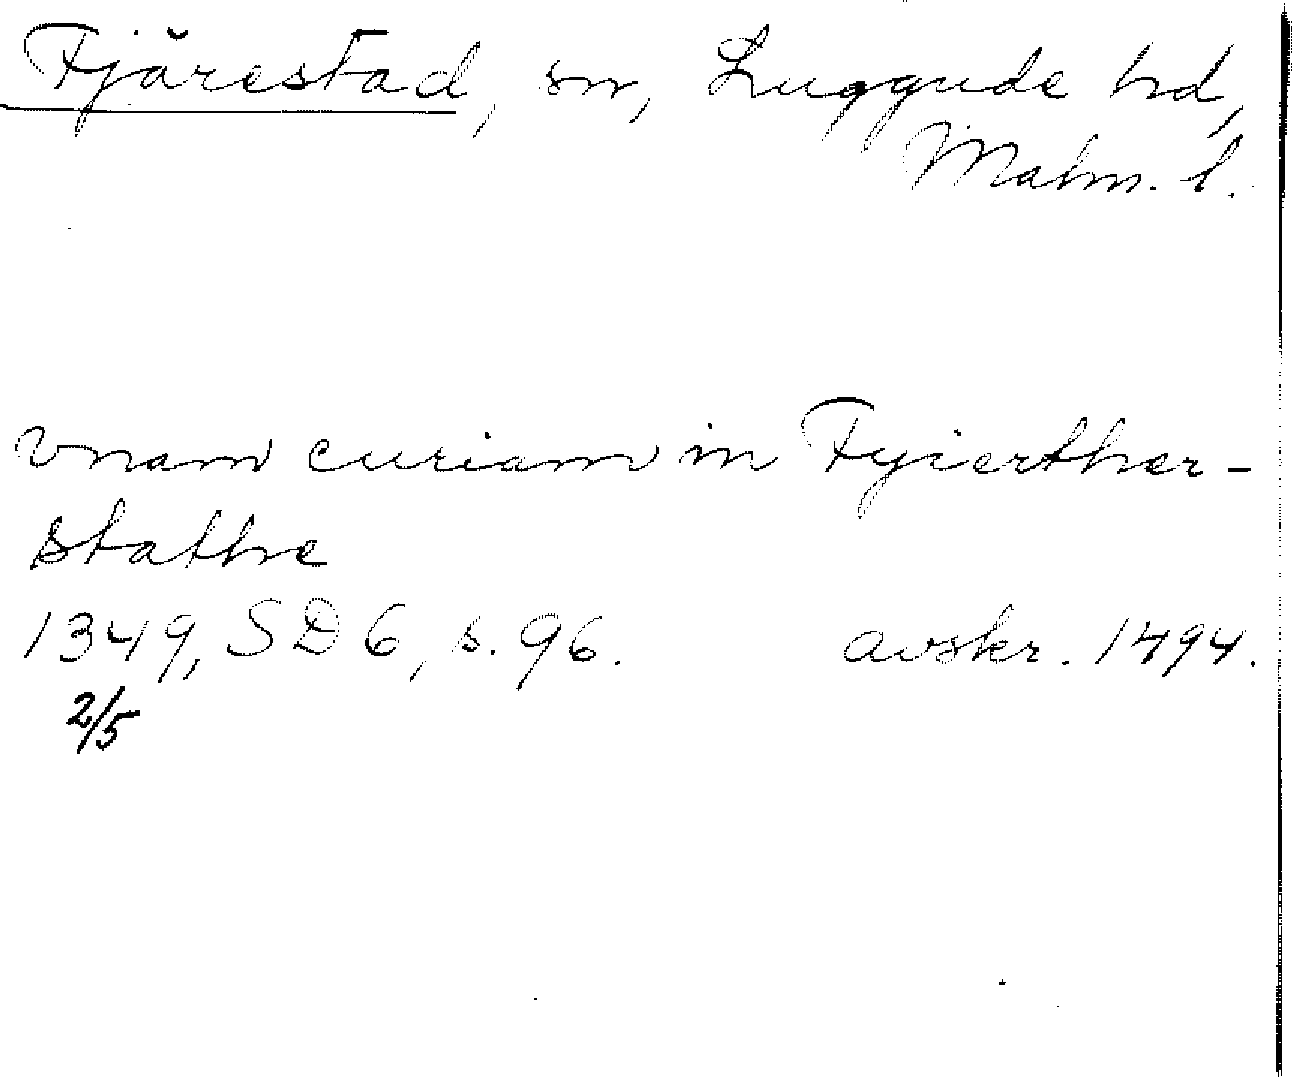 Fjärestad, sn, Luggude hd,
Malm. l.
vnam curiam in Fyierther-
stathe
1349, SD 6, s. 96. avskr. 1494.
2/5